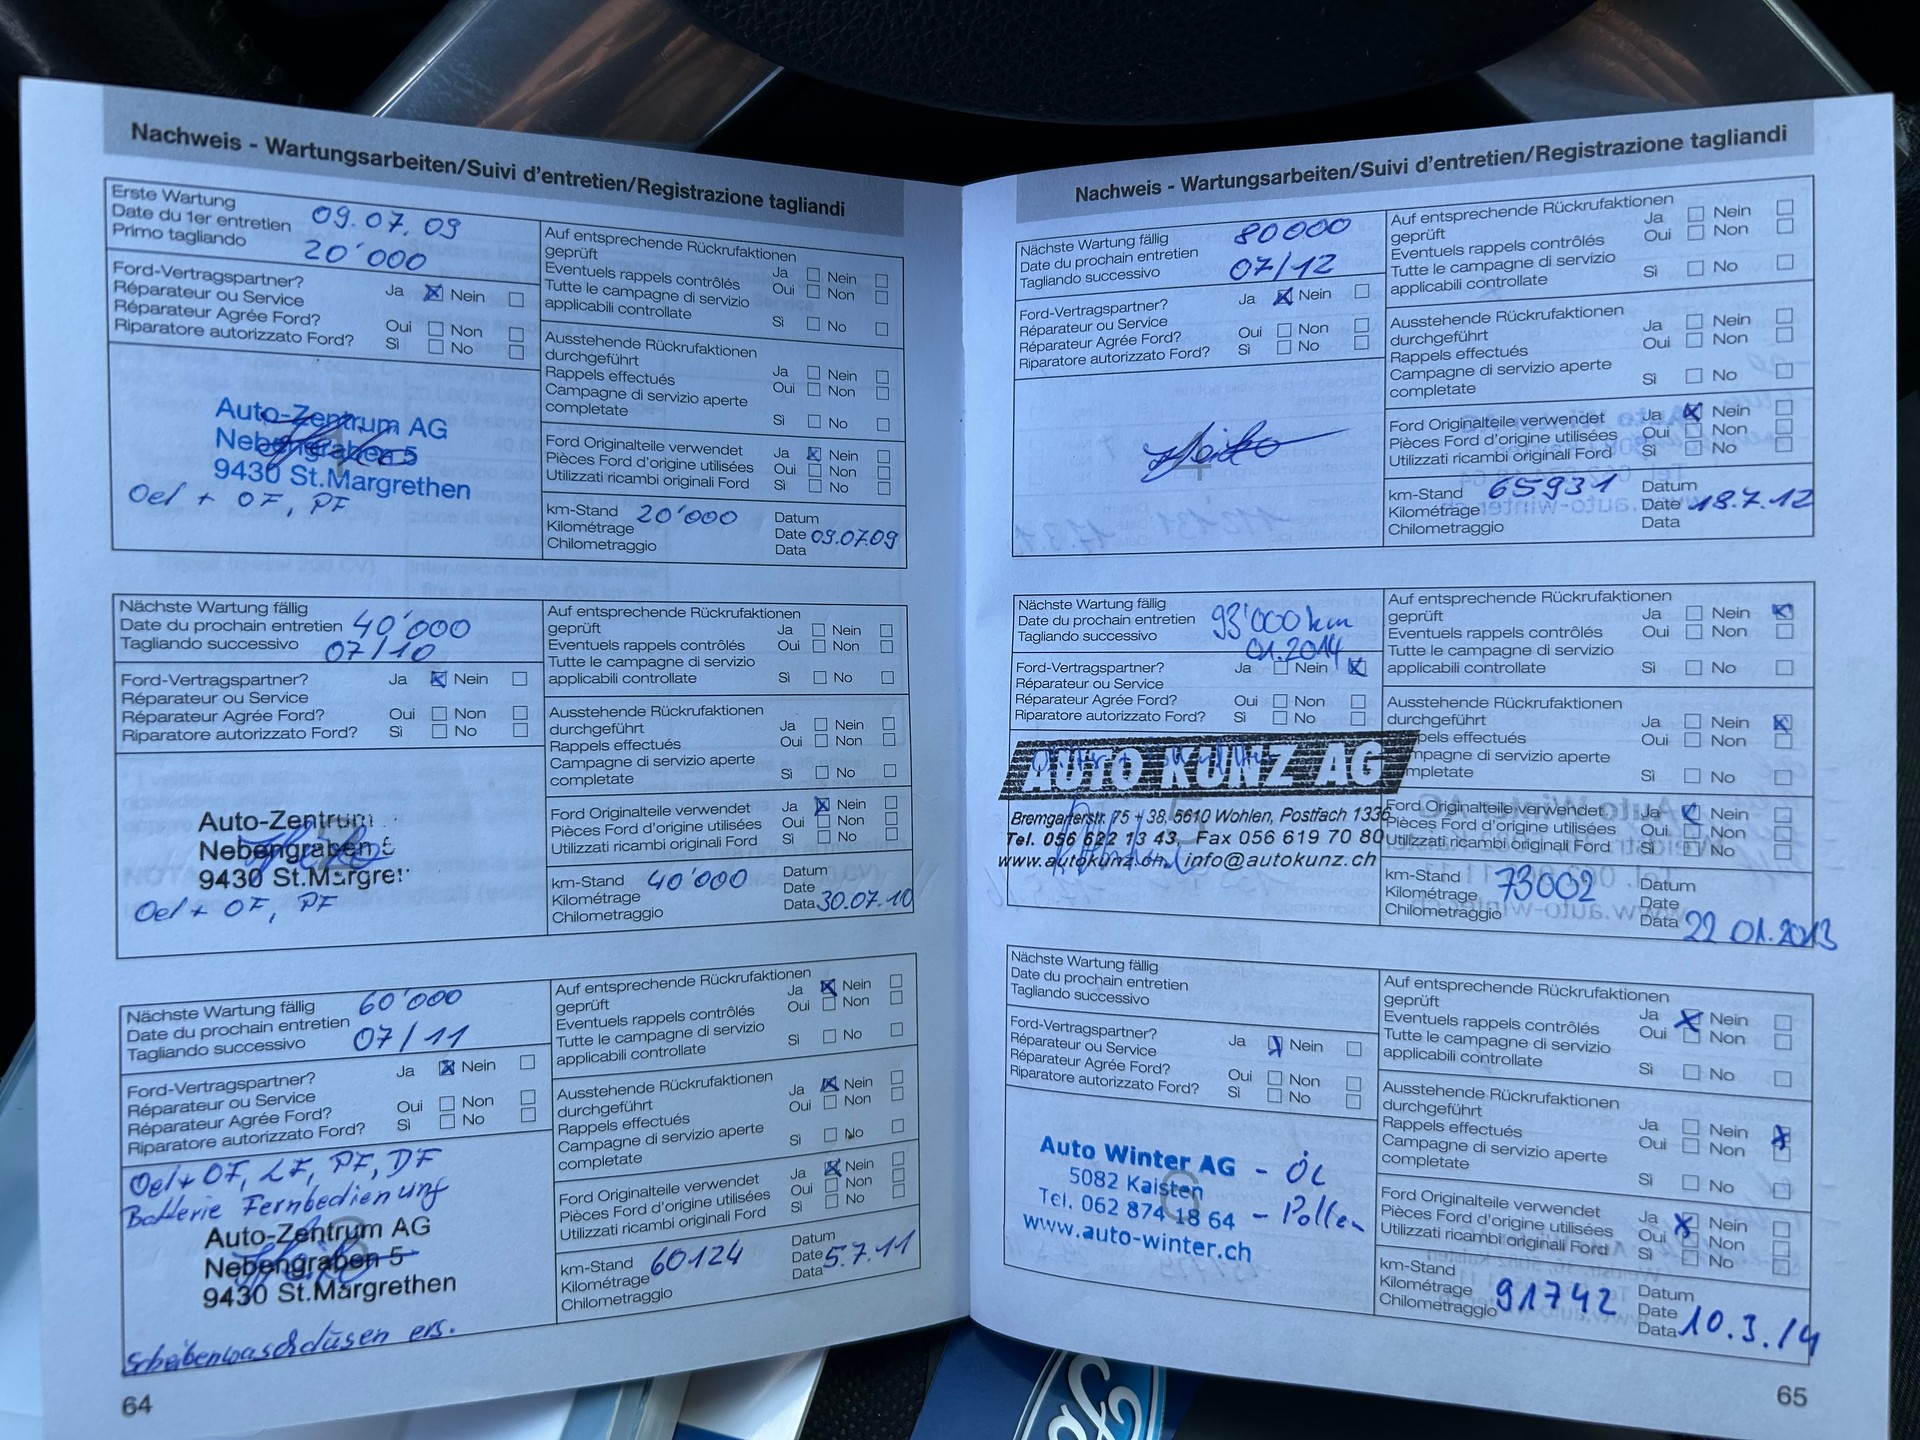 Nachweis - Wartungsarbeiten/Suivi d'entretien/Registrazione tagliandi
Erste Wartung
Date du 1er entretien
Primo tagliando
09.07.09
20'000
Ford-Vertragspartner?
Réparateur ou Service
Réparateur Agrée Ford?
Riparatore autorizzato Ford?
Ja Nein
Oui Non
Sì No
Auto-Zentrum AG
Nebengraben 5
9430 St.Margrethen
Oel + OF, PF
Auf entsprechende Rückrufaktionen
geprüft
Ja Nein
Eventuels rappels contrôlés
Oui Non
Tutte le campagne di servizio
applicabili controllate
Sì No
Ausstehende Rückrufaktionen
durchgeführt
Ja Nein
Rappels effectués
Oui Non
Campagne di servizio aperte
completate
Sì No
Ford Originalteile verwendet Ja Nein
Pièces Ford d'origine utilisées Oui Non
Utilizzati ricambi originali Ford Sì No
km-Stand 20'000
Kilométrage
Chilometraggio
Datum
Date 09.07.09
Data
Nächste Wartung fällig
Date du prochain entretien 40'000
Tagliando successivo 07/10
Ford-Vertragspartner?
Réparateur ou Service
Réparateur Agrée Ford?
Riparatore autorizzato Ford?
Ja Nein
Oui Non
Sì No
Auto-Zentrum
Nebengraben 5
9430 St.Margret
Oel + OF, PF
Auf entsprechende Rückrufaktionen
geprüft
Ja Nein
Eventuels rappels contrôlés
Oui Non
Tutte le campagne di servizio
applicabili controllate
Sì No
Ausstehende Rückrufaktionen
durchgeführt
Ja Nein
Rappels effectués
Oui Non
Campagne di servizio aperte
completate
Sì No
Ford Originalteile verwendet Ja Nein
Pièces Ford d'origine utilisées Oui Non
Utilizzati ricambi originali Ford Sì No
km-Stand 40'000
Kilométrage
Chilometraggio
Datum
Date
Data 30.07.10
Nächste Wartung fällig 60'000
Date du prochain entretien
Tagliando successivo 07/11
Ford-Vertragspartner?
Réparateur ou Service
Réparateur Agrée Ford?
Riparatore autorizzato Ford?
Ja Nein
Oui Non
Sì No
Oel + OF, LF, PF, DF
Batterie Fernbedienung
Auto-Zentrum AG
Nebengraben 5
9430 St.Margrethen
Scheibenwaschdüsen ers.
Auf entsprechende Rückrufaktionen
geprüft
Ja Nein
Eventuels rappels contrôlés
Oui Non
Tutte le campagne di servizio
applicabili controllate
Sì No
Ausstehende Rückrufaktionen
durchgeführt
Ja Nein
Rappels effectués
Oui Non
Campagne di servizio aperte
completate
Sì No
Ford Originalteile verwendet Ja Nein
Pièces Ford d'origine utilisées Oui Non
Utilizzati ricambi originali Ford Sì No
km-Stand 60124
Kilométrage
Chilometraggio
Datum
Date 5.7.11
Data
64
Nachweis - Wartungsarbeiten/Suivi d'entretien/Registrazione tagliandi
Nächste Wartung fällig 80000
Date du prochain entretien
Tagliando successivo 07/12
Ford-Vertragspartner?
Réparateur ou Service
Réparateur Agrée Ford?
Riparatore autorizzato Ford?
Ja Nein
Oui Non
Sì No
4
Auf entsprechende Rückrufaktionen
geprüft
Ja Nein
Eventuels rappels contrôlés
Oui Non
Tutte le campagne di servizio
applicabili controllate
Sì No
Ausstehende Rückrufaktionen
durchgeführt
Ja Nein
Rappels effectués
Oui Non
Campagne di servizio aperte
completate
Sì No
Ford Originalteile verwendet Ja Nein
Pièces Ford d'origine utilisées Oui Non
Utilizzati ricambi originali Ford Sì No
km-Stand 65931
Kilométrage
Chilometraggio
Datum
Date 18.7.12
Data
Nächste Wartung fällig
Date du prochain entretien 93'000 km
Tagliando successivo 01.2014
Ford-Vertragspartner?
Réparateur ou Service
Réparateur Agrée Ford?
Riparatore autorizzato Ford?
Ja Nein
Oui Non
Sì No
AUTO KUNZ AG
5
Bremgarterstr. 75 + 38, 5610 Wohlen, Postfach 1336
Tel. 056 622 13 43, Fax 056 619 70 80
www.autokunz.ch, info@autokunz.ch
Auf entsprechende Rückrufaktionen
geprüft
Ja Nein
Eventuels rappels contrôlés
Oui Non
Tutte le campagne di servizio
applicabili controllate
Sì No
Ausstehende Rückrufaktionen
durchgeführt
Ja Nein
pels effectués
Oui Non
mpagne di servizio aperte
mpletate
Sì No
Ford Originalteile verwendet Ja Nein
Pièces Ford d'origine utilisées Oui Non
Utilizzati ricambi originali Ford Sì No
km-Stand 73002
Kilométrage
Chilometraggio
Datum
Date
Data 22 01.2013
Nächste Wartung fällig
Date du prochain entretien
Tagliando successivo
Ford-Vertragspartner?
Réparateur ou Service
Réparateur Agrée Ford?
Riparatore autorizzato Ford?
Ja Nein
Oui Non
Sì No
Auto Winter AG - ÖL
5082 Kaisten
6
Tel. 062 874 18 64 - Pollen
www.auto-winter.ch
Auf entsprechende Rückrufaktionen
geprüft
Ja Nein
Eventuels rappels contrôlés
Oui Non
Tutte le campagne di servizio
applicabili controllate
Sì No
Ausstehende Rückrufaktionen
durchgeführt
Ja Nein
Rappels effectués
Oui Non
Campagne di servizio aperte
completate
Sì No
Ford Originalteile verwendet Ja Nein
Pièces Ford d'origine utilisées Oui Non
Utilizzati ricambi originali Ford Sì No
km-Stand
Kilométrage 91742
Chilometraggio
Datum
Date
Data 10.3.14
65